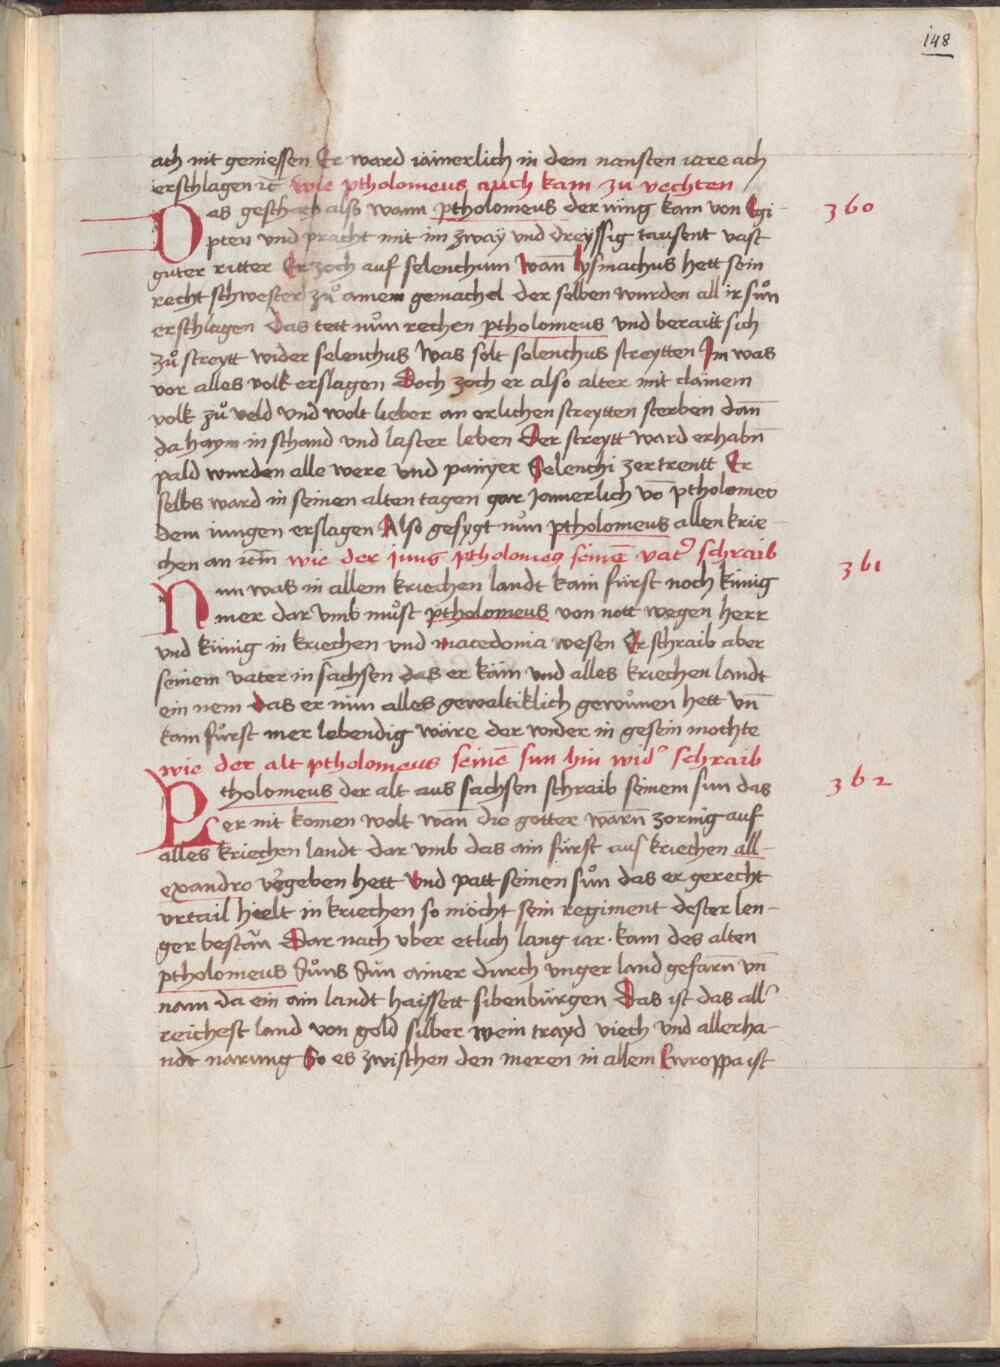 148
ach nit geniessen Er ward iämerlich in dem nansten iare ach
erschlagen ꝛc̄ wie ptholomeus auch kam zu vechten
360
Das geschach also wann ptholomeus der iüng kam von Egi-
pten vnd pracht mit im zwaÿ vnd dreÿssig tausent vast
guter ritter Er zoch auf selenchum wan̄ lÿsmachus hett sein
recht schwester zů ainem gemachel der selben wurden all ir sün
erschlagen Das tett nůn rechen ptholomeus vnd beraitt sich
zů streytt wider selenchus Was solt selenchus streytten Im was
vor alles volk erslagen Doch zoch er also alter mit clainem
volk zů veld vnd wolt lieber an erlichen streytten sterben dan̄
da haym in schand vnd laster leben Der streytt ward erhabn̄
pald wurden alle were vnd paniyer Selenchi zertrentt Er
selbs ward in seinen alten tagen gar Jamerlich vō ptholomeo
dem iungen erslagen Also gesygt nůn ptholomeus allen krie-
chen an ꝛc̄m wie der jung ptholomeus seinē vatr̄ schraib
361
Nun was in allem kriechen landt kain fürst noch künig
mer dar vmb můst ptholomeus von nott wegen herr
vnd künig in kriechen vnd macedonia wesen Er schraib aber
seinem vater in sachsen das er käm vnd alles kriechen landt
ein nem Das er nun alles gewaltiklich gewůnnen hett vn̄
kain fürst mer lebendig wäre der wider in gesein mochte
wie der alt ptholomeus seinē sun hin widr̄ schraib
362
Ptholomeus der alt aus sachsen schraib seinem sun das
er nit komen wolt wan̄ die götter warn̄ zornig auf
alles kriechen landt dar vmb das ain fürst aus kriechen all-
exandro vergeben hett Vnd patt seinen sůn das er gerecht
vrtail hielt in kriechen so möcht sein regiment dester len-
ger bestän Dar nach vber etlich lang iar kam des alten
ptholomeus Sůns Sůn ainer durch vnger land gefarn̄ vn̄
nam da ein ain landt haissett sibenbürgen Das ist das all'
reichest land von gold silber wein trayd viech vnd allerha-
ndt narung So es zwischen den meren in allem Ewroppa ist